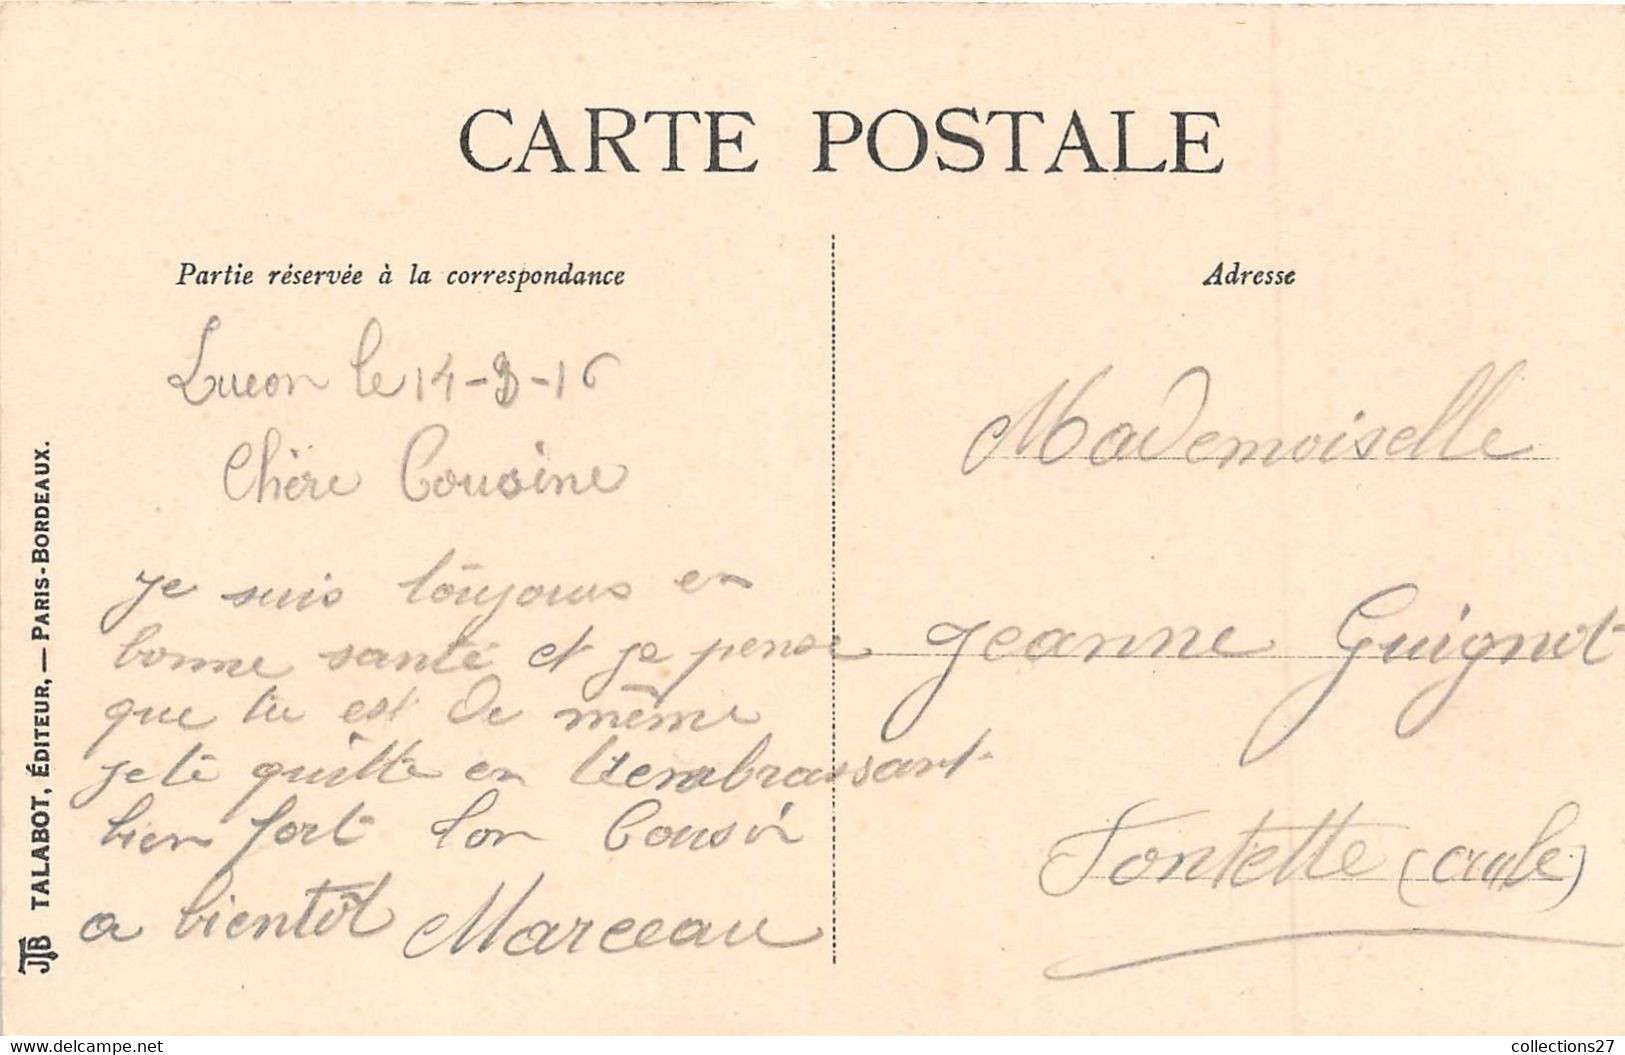 CARTE POSTALE
Partie réservée à la correspondance
Lucon le 14-3-16
Chère Cousine
je suis toujours en
bonne santé et je pense
que tu est de même
je te quitte en t'embrassant
bien fort ton Cousin
a bientôt Marceau
Adresse
Mademoiselle
Jeanne Guignot
Fontette (aube)
JTB TALABOT, ÉDITEUR, — PARIS-BORDEAUX.
www.delcampe.net
collections27